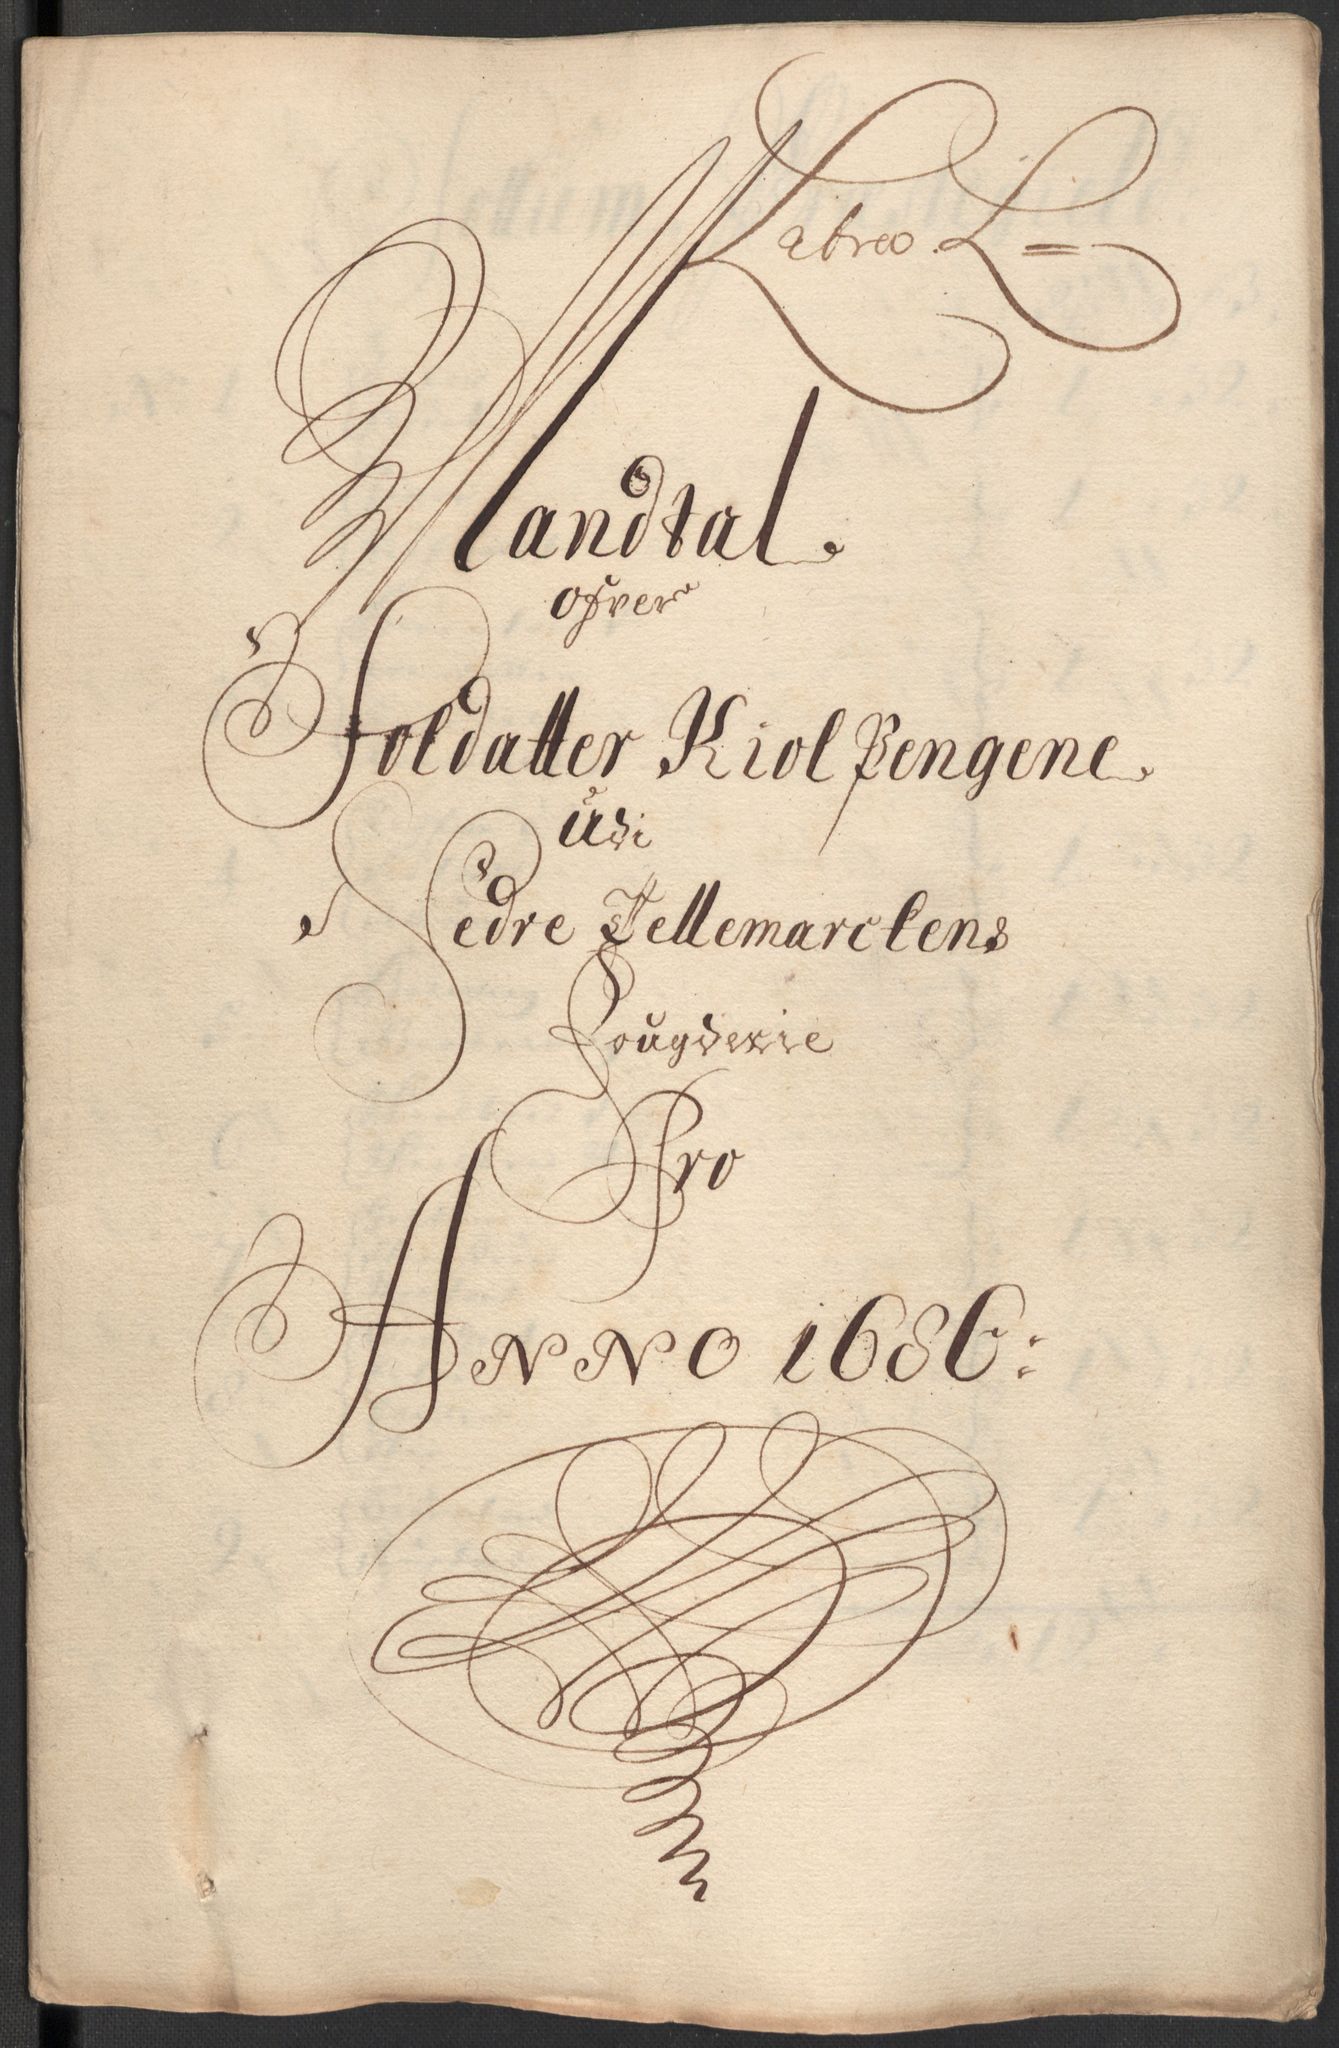 Labreo. L=
Mandtal.
ofver
Soldatter Kiol Pengene.
udi
Nedre Tellemarckens
Fougderie
Pro
ANNO 1686: